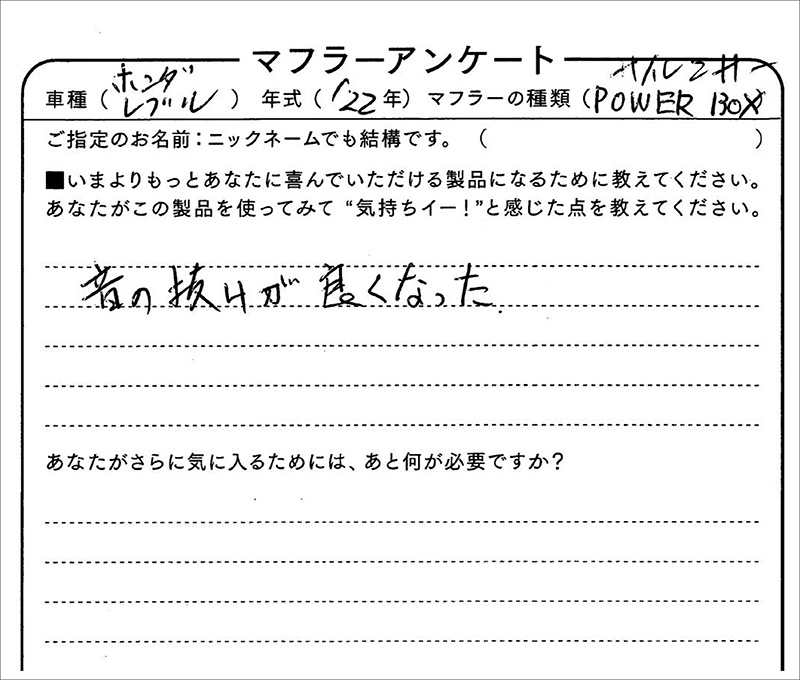 マフラーアンケート
車種（ホンダ レブル） 年式（'22年）マフラーの種類（POWER BOX
ご指定のお名前：ニックネームでも結構です。（ ）
■いまよりもっとあなたに喜んでいただける製品になるために教えてください。
あなたがこの製品を使ってみて “気持ちイー！”と感じた点を教えてください。
音の抜けが良くなった.
あなたがさらに気に入るためには、あと何が必要ですか？